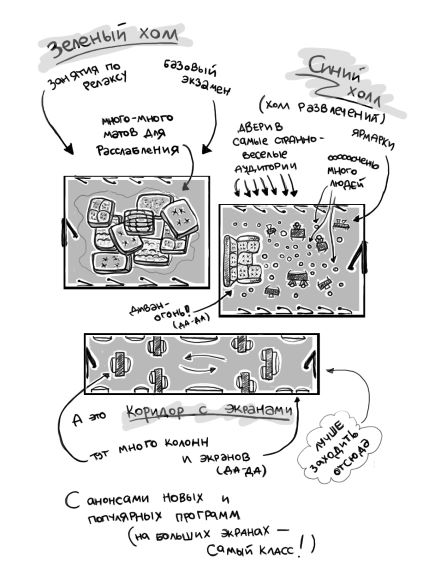 Зеленый холл
занятия по
релаксу
базовый
экзамен
много-много
матов для
расслабления
Синий
холл
(холл развлечений)
ярмарки
двери в
самые странно-
веселые
аудитории
оооооочень
много
людей
диван-
огонь!
(да-да)
А это
Коридор с экранами
тут много колонн
и экранов
(да-да)
лучше
заходить
отсюда
С анонсами новых и
популярных программ
(на больших экранах –
самый класс!)